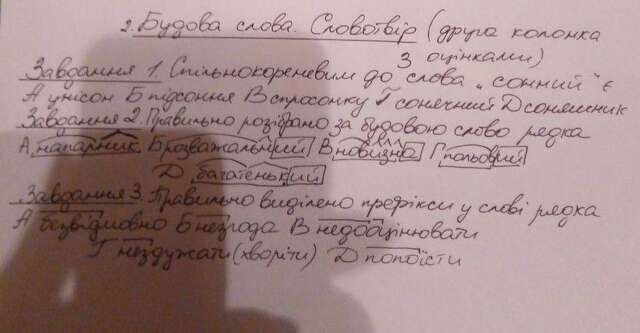 2. Будова слова. Словотвір (друга колонка
з оцінками)
Завдання 1. Спільнокореневим до слова „сонний" є
А унісон Б підсоння В спросонку Г сонячний Д соняшник
Завдання 2. Правильно розібрано за будовою слово рядка
А напарник Б розважальний В новизна Г польовий
Д багатенький
Завдання 3. Правильно виділено префікси у слові рядка
А безвідмовно Б незгода В недооцінювати
Г нездужати (хворіти) Д попоїсти